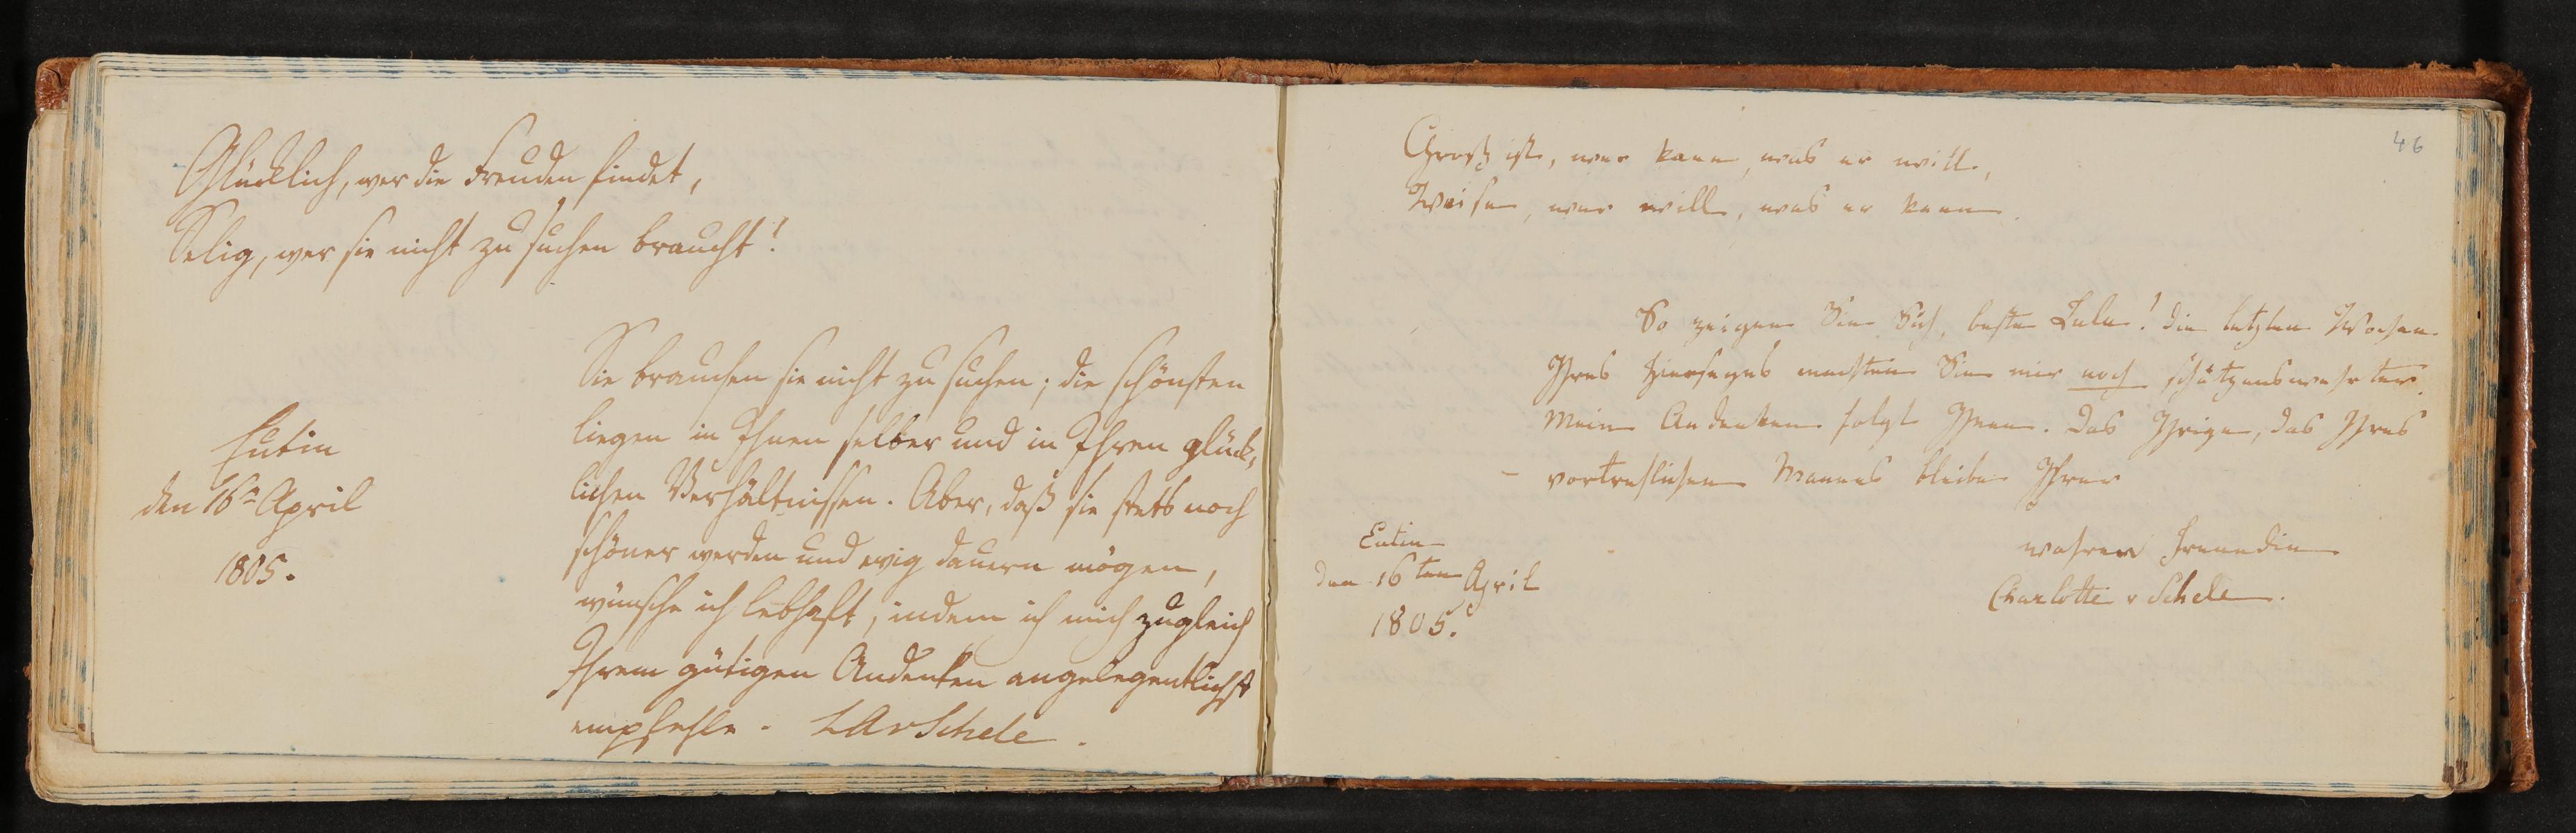 Glücklich, wer die Freuden findet,
Selig, wer sie nicht zu suchen braucht!
Sie brauchen sie nicht zu suchen; die schönsten
liegen in Ihnen selber und in Ihren glück,
lichen Verhältnissen. Aber, daß sie stets noch
schöner werden und ewig dauern mögen,
wünsche ich lebhaft, indem ich mich zugleich
Ihrem gütigen Andenken angelegentlichst
empfehle. LAvSchele.
Eutin
den 16n April
1805.
46
Groß ist, wer kann, was er will,
Weise, wer will, was er kann.
So zeigen Sie Sich, beste Lulu! die letzten Wochen
Ihres Hierseyns machten Sie mir noch schätzenswehrter.
Mein Andenken folgt Ihnen. Das Ihrige, das Ihres
vortreflichen Mannes bleibe Ihrer
wahren Freundin
Charlotte v Schele.
Eutin
den 16ten April
1805.